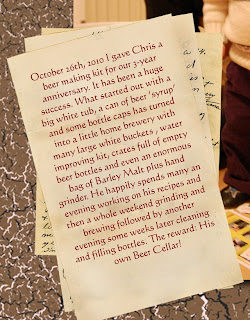 October 26th, 2010 I gave Chris a
beer making kit for our 3-year
anniversary. It has been a huge
success. What started out with a
big white tub, a can of beer 'syrup'
and some bottle caps has turned
into a little home brewery with
many large white buckets, water
improving kit, crates full of empty
beer bottles and even an enormous
bag of Barley Malt plus hand
grinder. He happily spends many an
evening working on his recipes and
then a whole weekend grinding and
brewing followed by another
evening some weeks later cleaning
and filling bottles. The reward: His
own Beer Cellar!